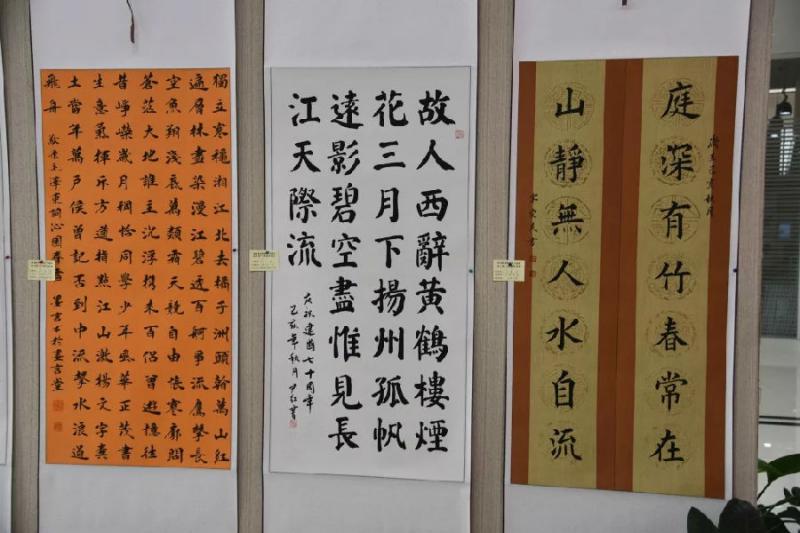 獨立寒穐湘江北去橘子洲頭看萬山紅
遍層林盡染漫江碧透百舸爭流鷹擊長
空魚翔淺底萬類霜天競自由悵寥廓問
蒼茫大地誰主沉浮携來百侶曾遊憶往
昔崢嶸歲月稠恰同學少年風華正茂書
生意氣揮斥方遒指點江山激揚文字糞
土當年萬戶侯曾記否到中流擊水浪遏
飛舟 毛澤東詞沁園春
故人西辭黃鶴樓煙
花三月下揚州孤帆
遠影碧空盡惟見長
江天際流
慶祝建國七十周年
己亥年秋月
庭深有竹春常在
山靜無人水自流